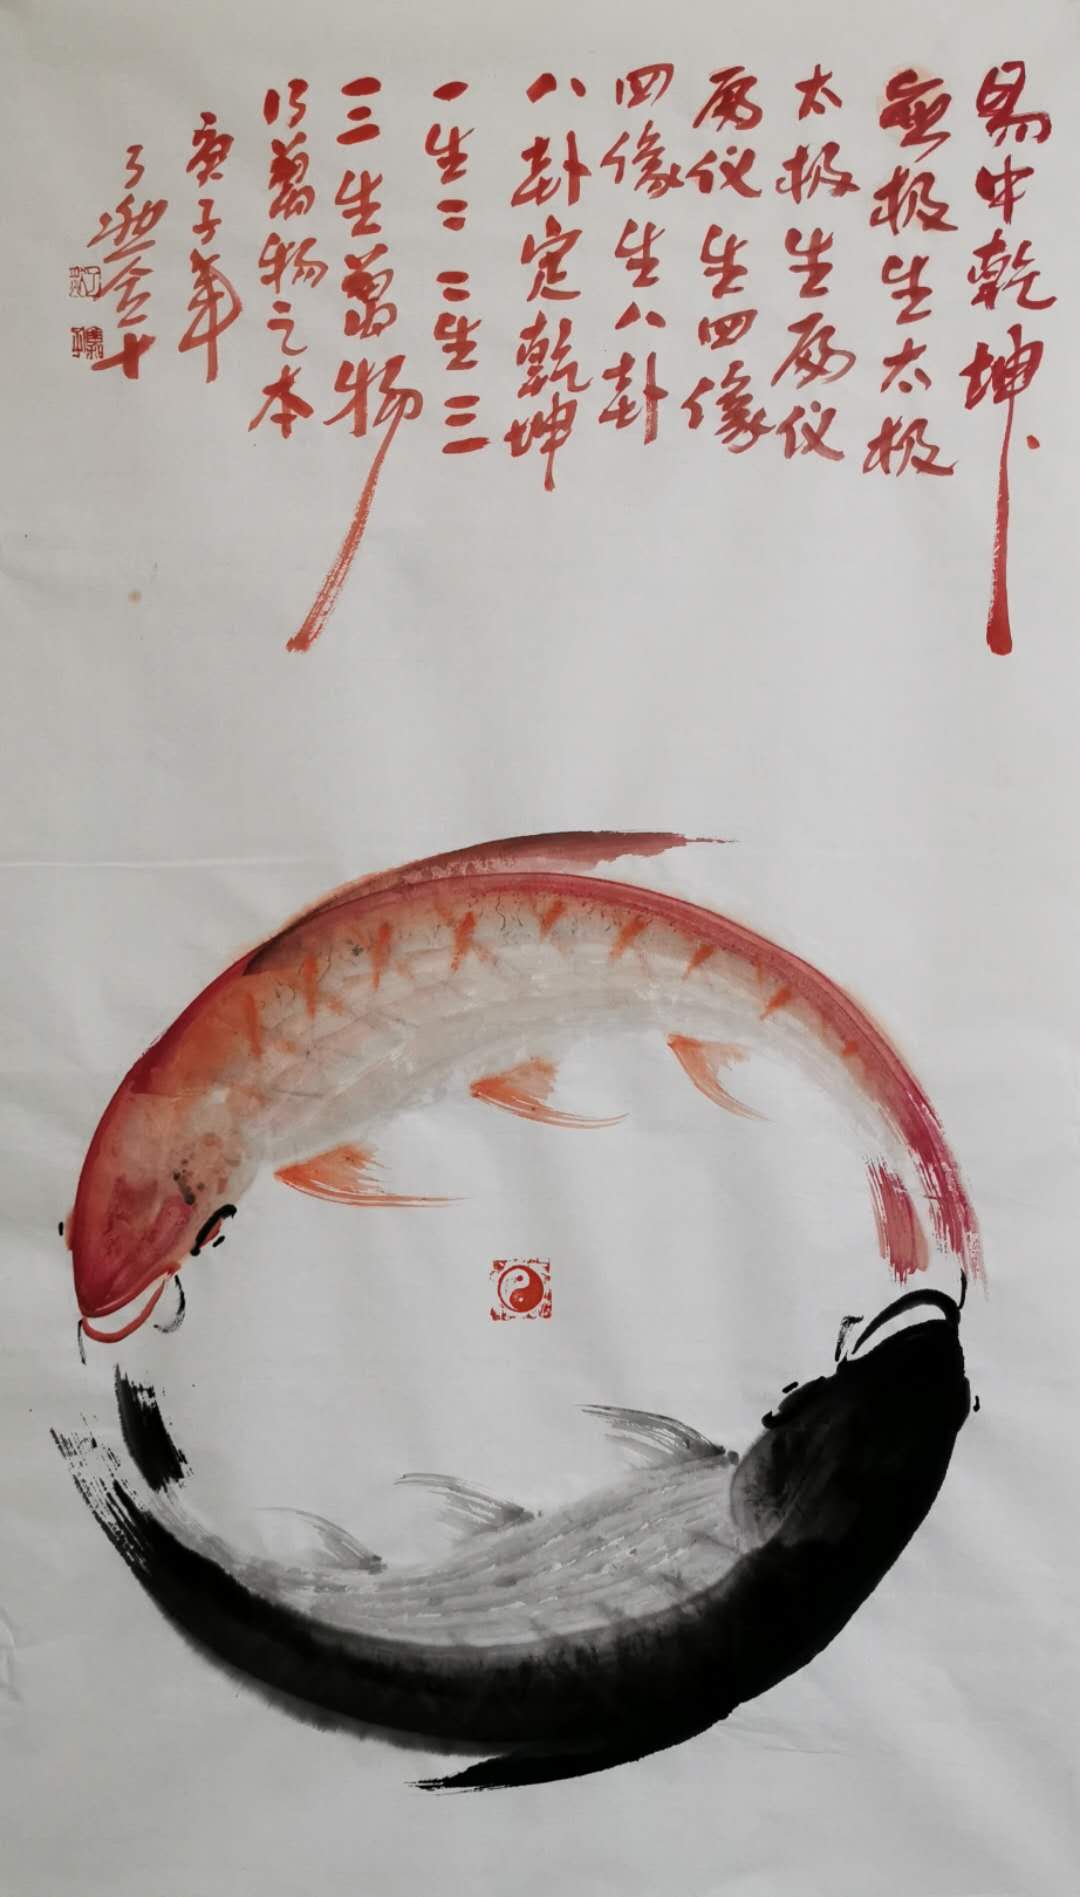 易中乾坤
無极生太极
太极生两仪
两仪生四像
四像生八卦
八卦定乾坤
一生二 二生三
三生萬物
乃萬物之本
庚子年